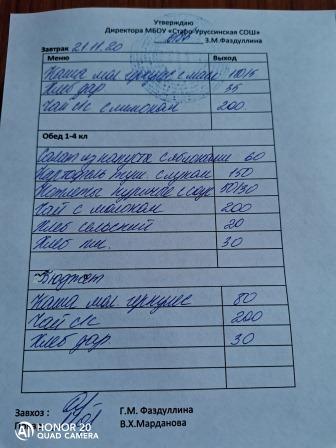 Утверждаю
Директора МБОУ «Старо-Уруссинская СОШ»
З.М.Фаздуллина
Завтрак 21.11.20
Меню Выход
Каша мол геркулес с мас
Хлеб дар 35
Чай с/с с лимоном 200
Обед 1-4 кл
Салат из капусты с яблоками 60
Картофель туш с луком 150
Котлеты куриные с соус 50/30
Чай с молоком 200
Хлеб сельский 20
Хлеб пш. 30
Бюджет
Каша мол геркулес 80
Чай с/с 200
Хлеб дар 30
Завхоз : Г.М. Фаздуллина
В.Х.Марданова
HONOR 20
AI QUAD CAMERA